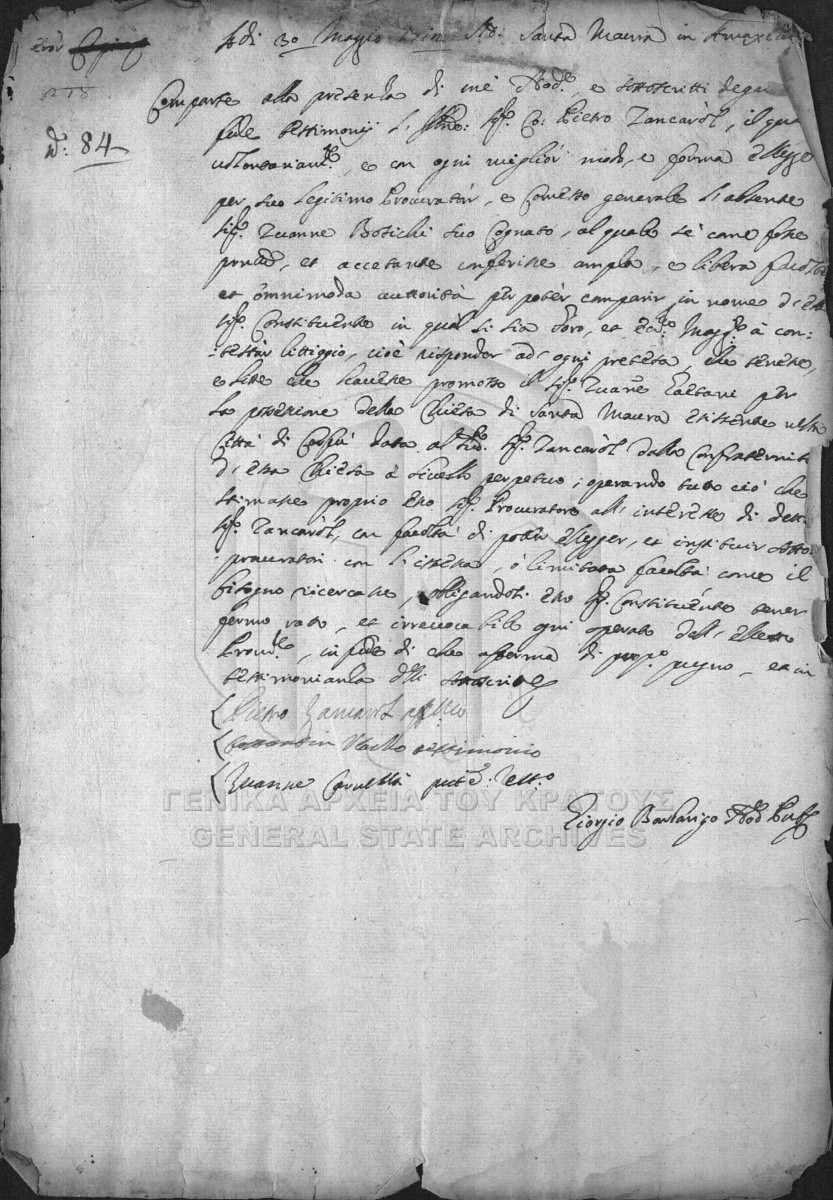 Adi 30 Maggio S. V. Santa Maura in Amaxichi
N.º 84
Comparse alla presenza di mè Nod.º, e sottoscritti degni
fede testimonij l' Illmo: Sig.r Co: Pietro Zancaròl, il qua
uolontariam.te, e con ogni miglior modo, e forma elegge
per suo legitimo Procurator, e Comesso generale l'absente
Sig.r Zuanne Bosichi suo Cognato, al quale sè come fosse
prnte, et accetante inferisse ampla, e libera facoltà
et omnimoda auttorità per potèr comparir in nome d'esso
Sig.r Constituente in qual si sia foro, et Ecc.mo Magg.to à con:
:testàr littiggio, cioè risponder ad' ogni pretesa, che tenesse,
e lite che hauesse promosso il Sig.r Zuane per
la possessione della Chiesa di Santa Maura esistente nella
Città di Corfù data al Sud.to Sig.r Zancaròl dalla Confraternità
d'essa Chiesa à liuello perpetuo; operando tutto ciò che
stimasse proprio esso Sig.r Procuratore all' interesse di detto
Sig.r Zancaròl, con facoltà di poter elegger, et instituir sotto
procuratori con l'istessa, ò limitata facoltà come il
bisogno ricercasse, obligandosi esso Sig.r Constituente tener
fermo rato, et irreuocabile ogni operato dall' eletto
Procu.re, in fede di che afferma di prop.o pugno, et in
testimonianza delli sottoscritti
Pietro Zancarol affermo
testimonio
Zuanne test.o
Giorgio Barbarigo Nod.º
ΓΕΝΙΚΑ ΑΡΧΕΙΑ ΤΟΥ ΚΡΑΤΟΥΣ
GENERAL STATE ARCHIVES